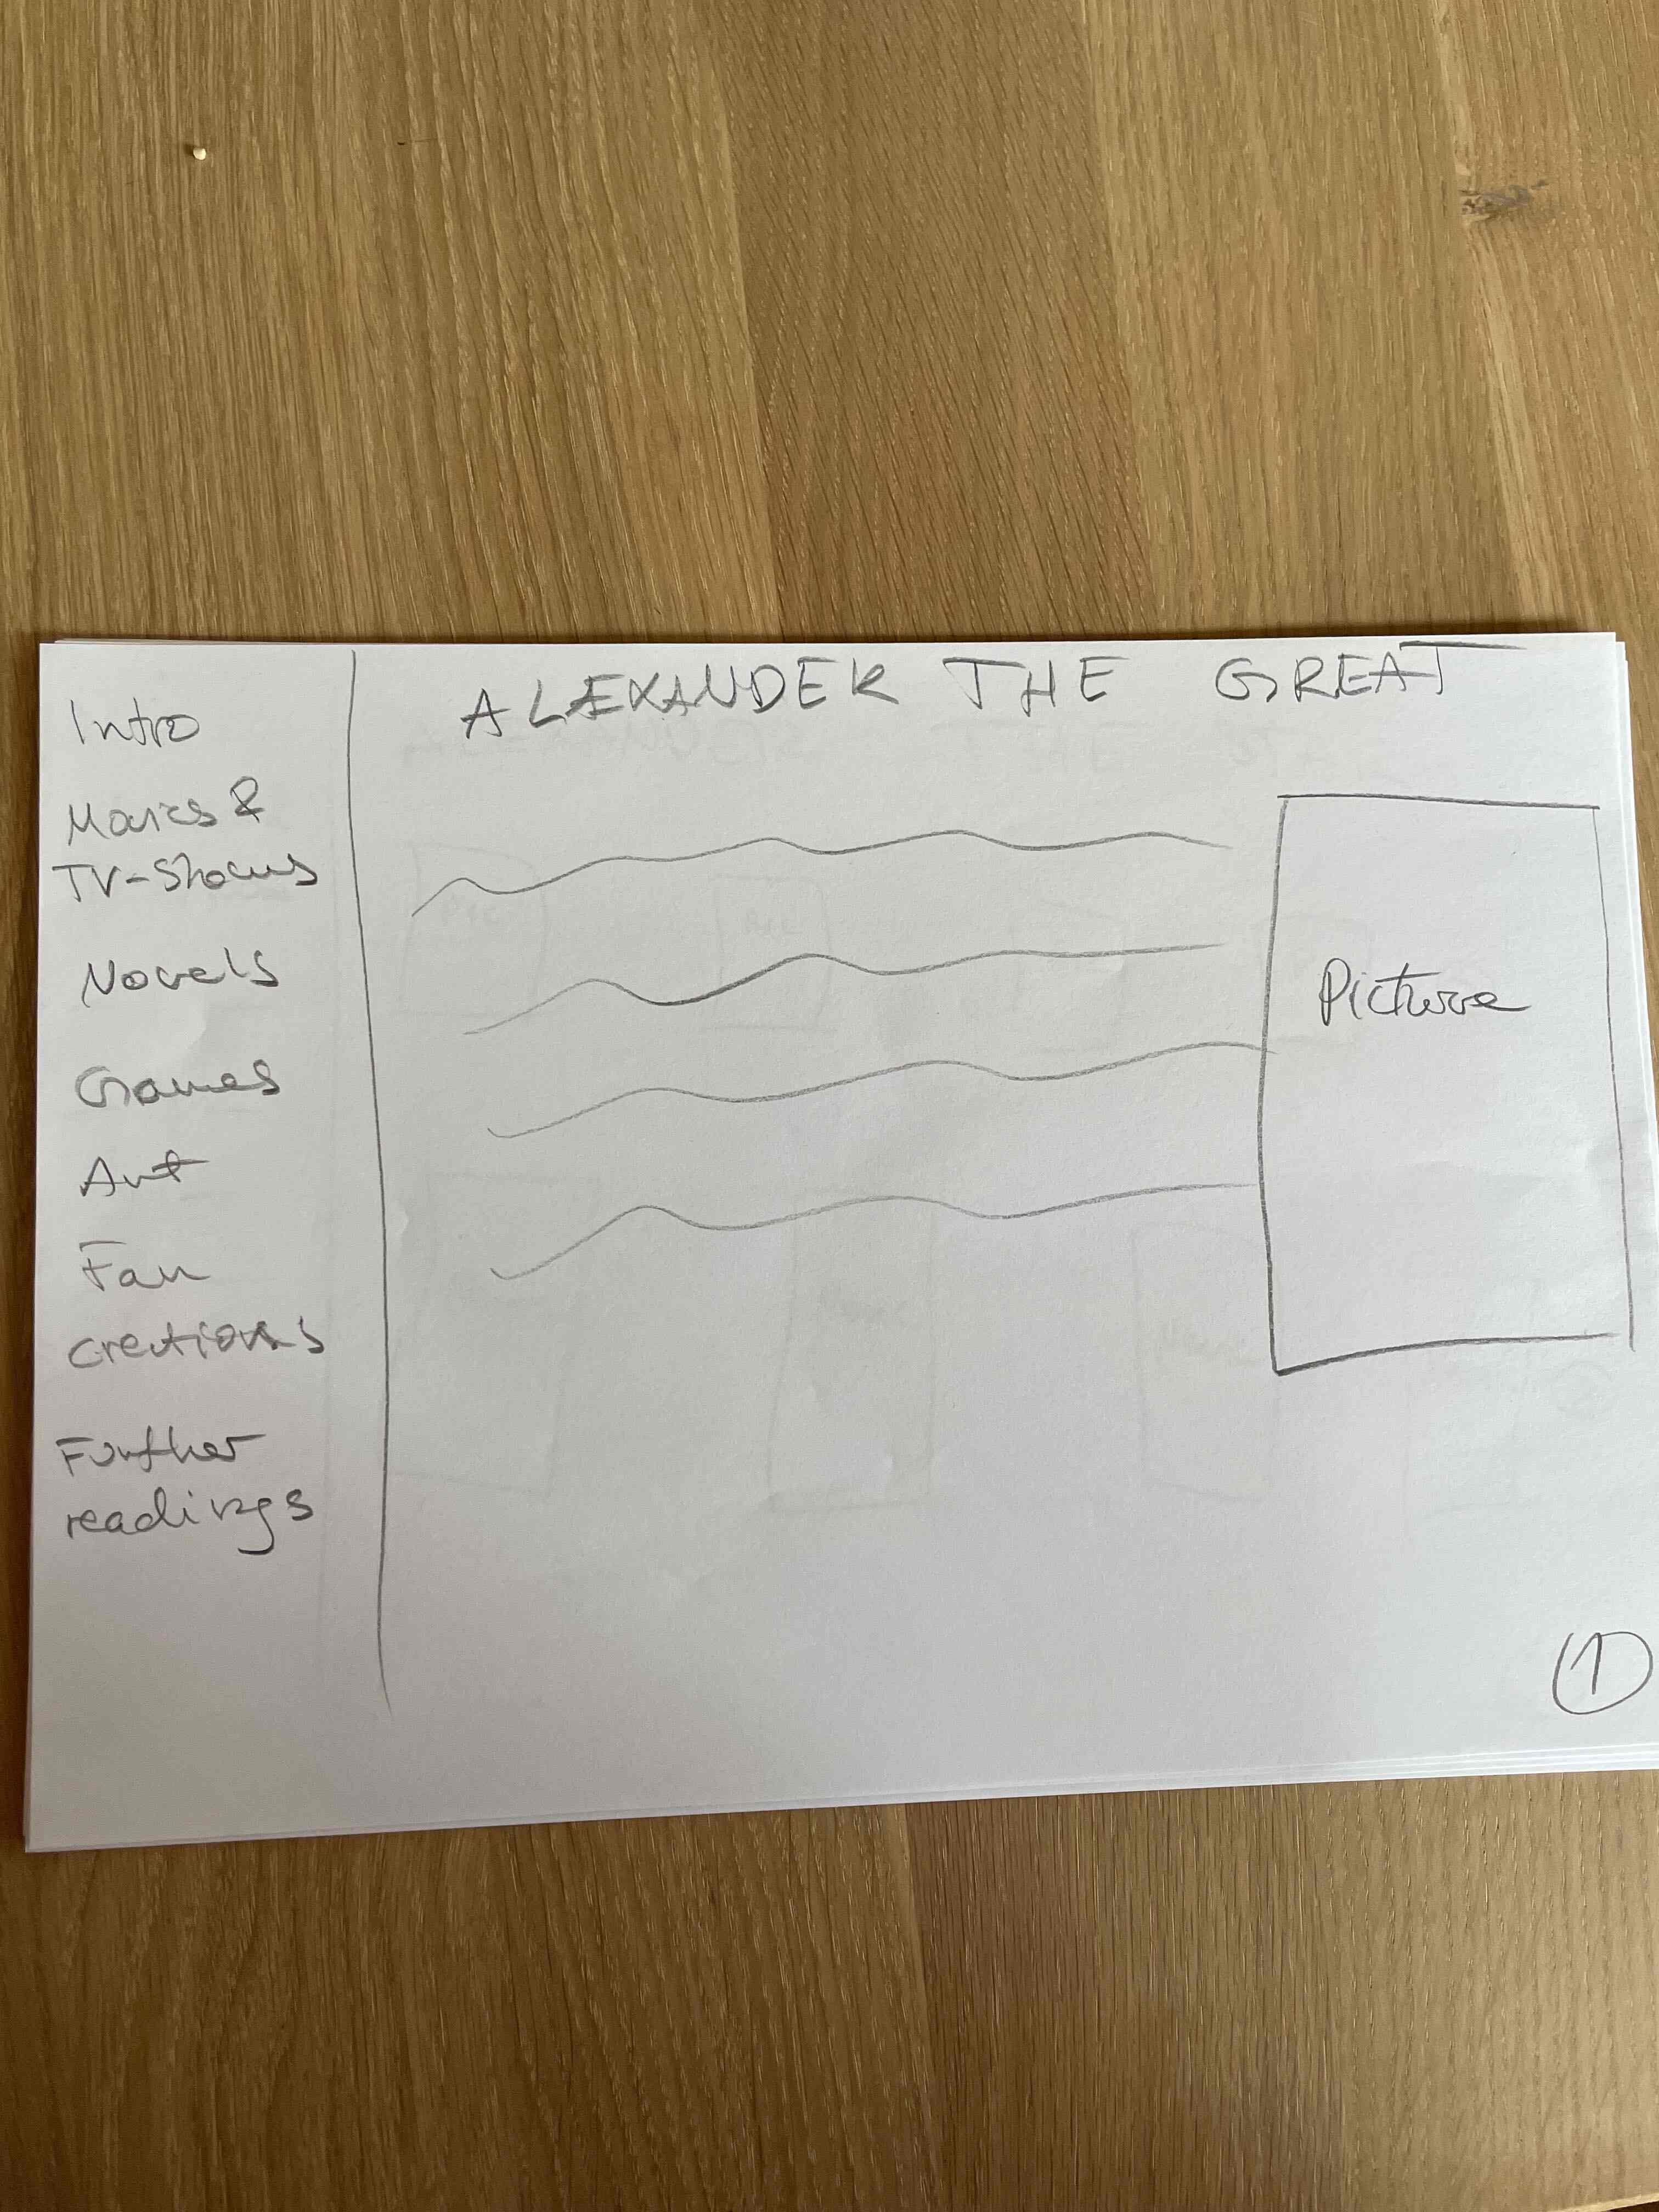 Intro
Movies &
TV-Shows
Novels
Games
Art
Fan
creations
Further
readings
ALEXANDER THE GREAT
Picture
1